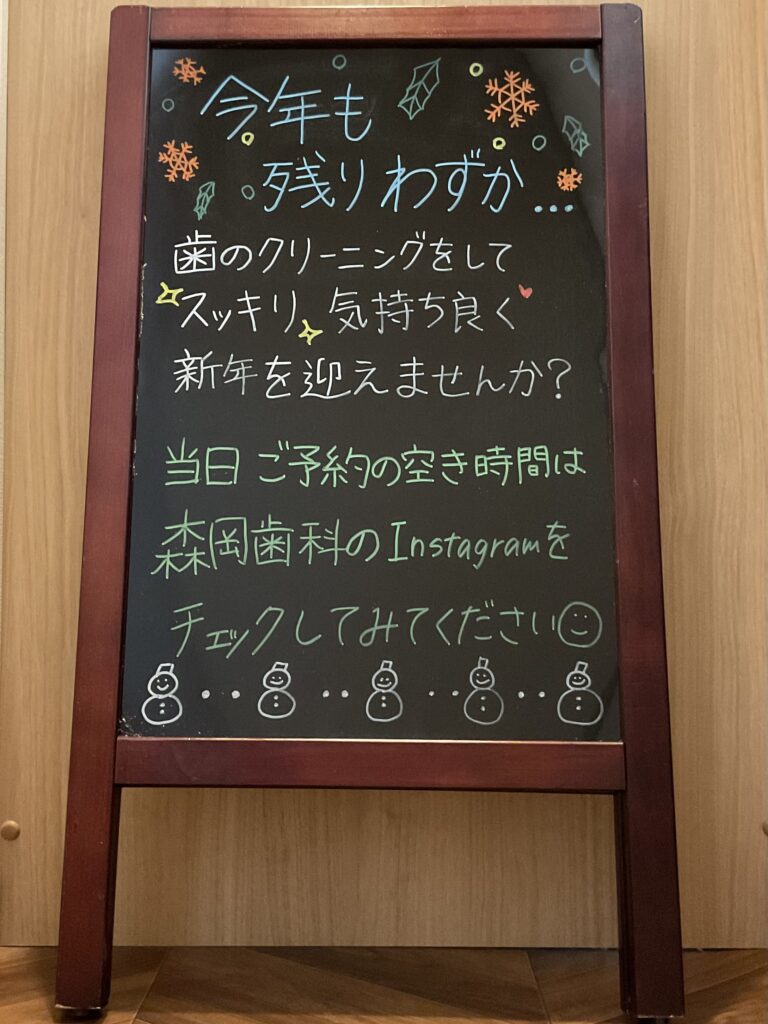 今年も
残りわずか...
歯のクリーニングをして
スッキリ 気持ち良く
新年を迎えませんか?
当日 ご予約の空き時間は
森岡歯科のInstagramを
チェックしてみてください